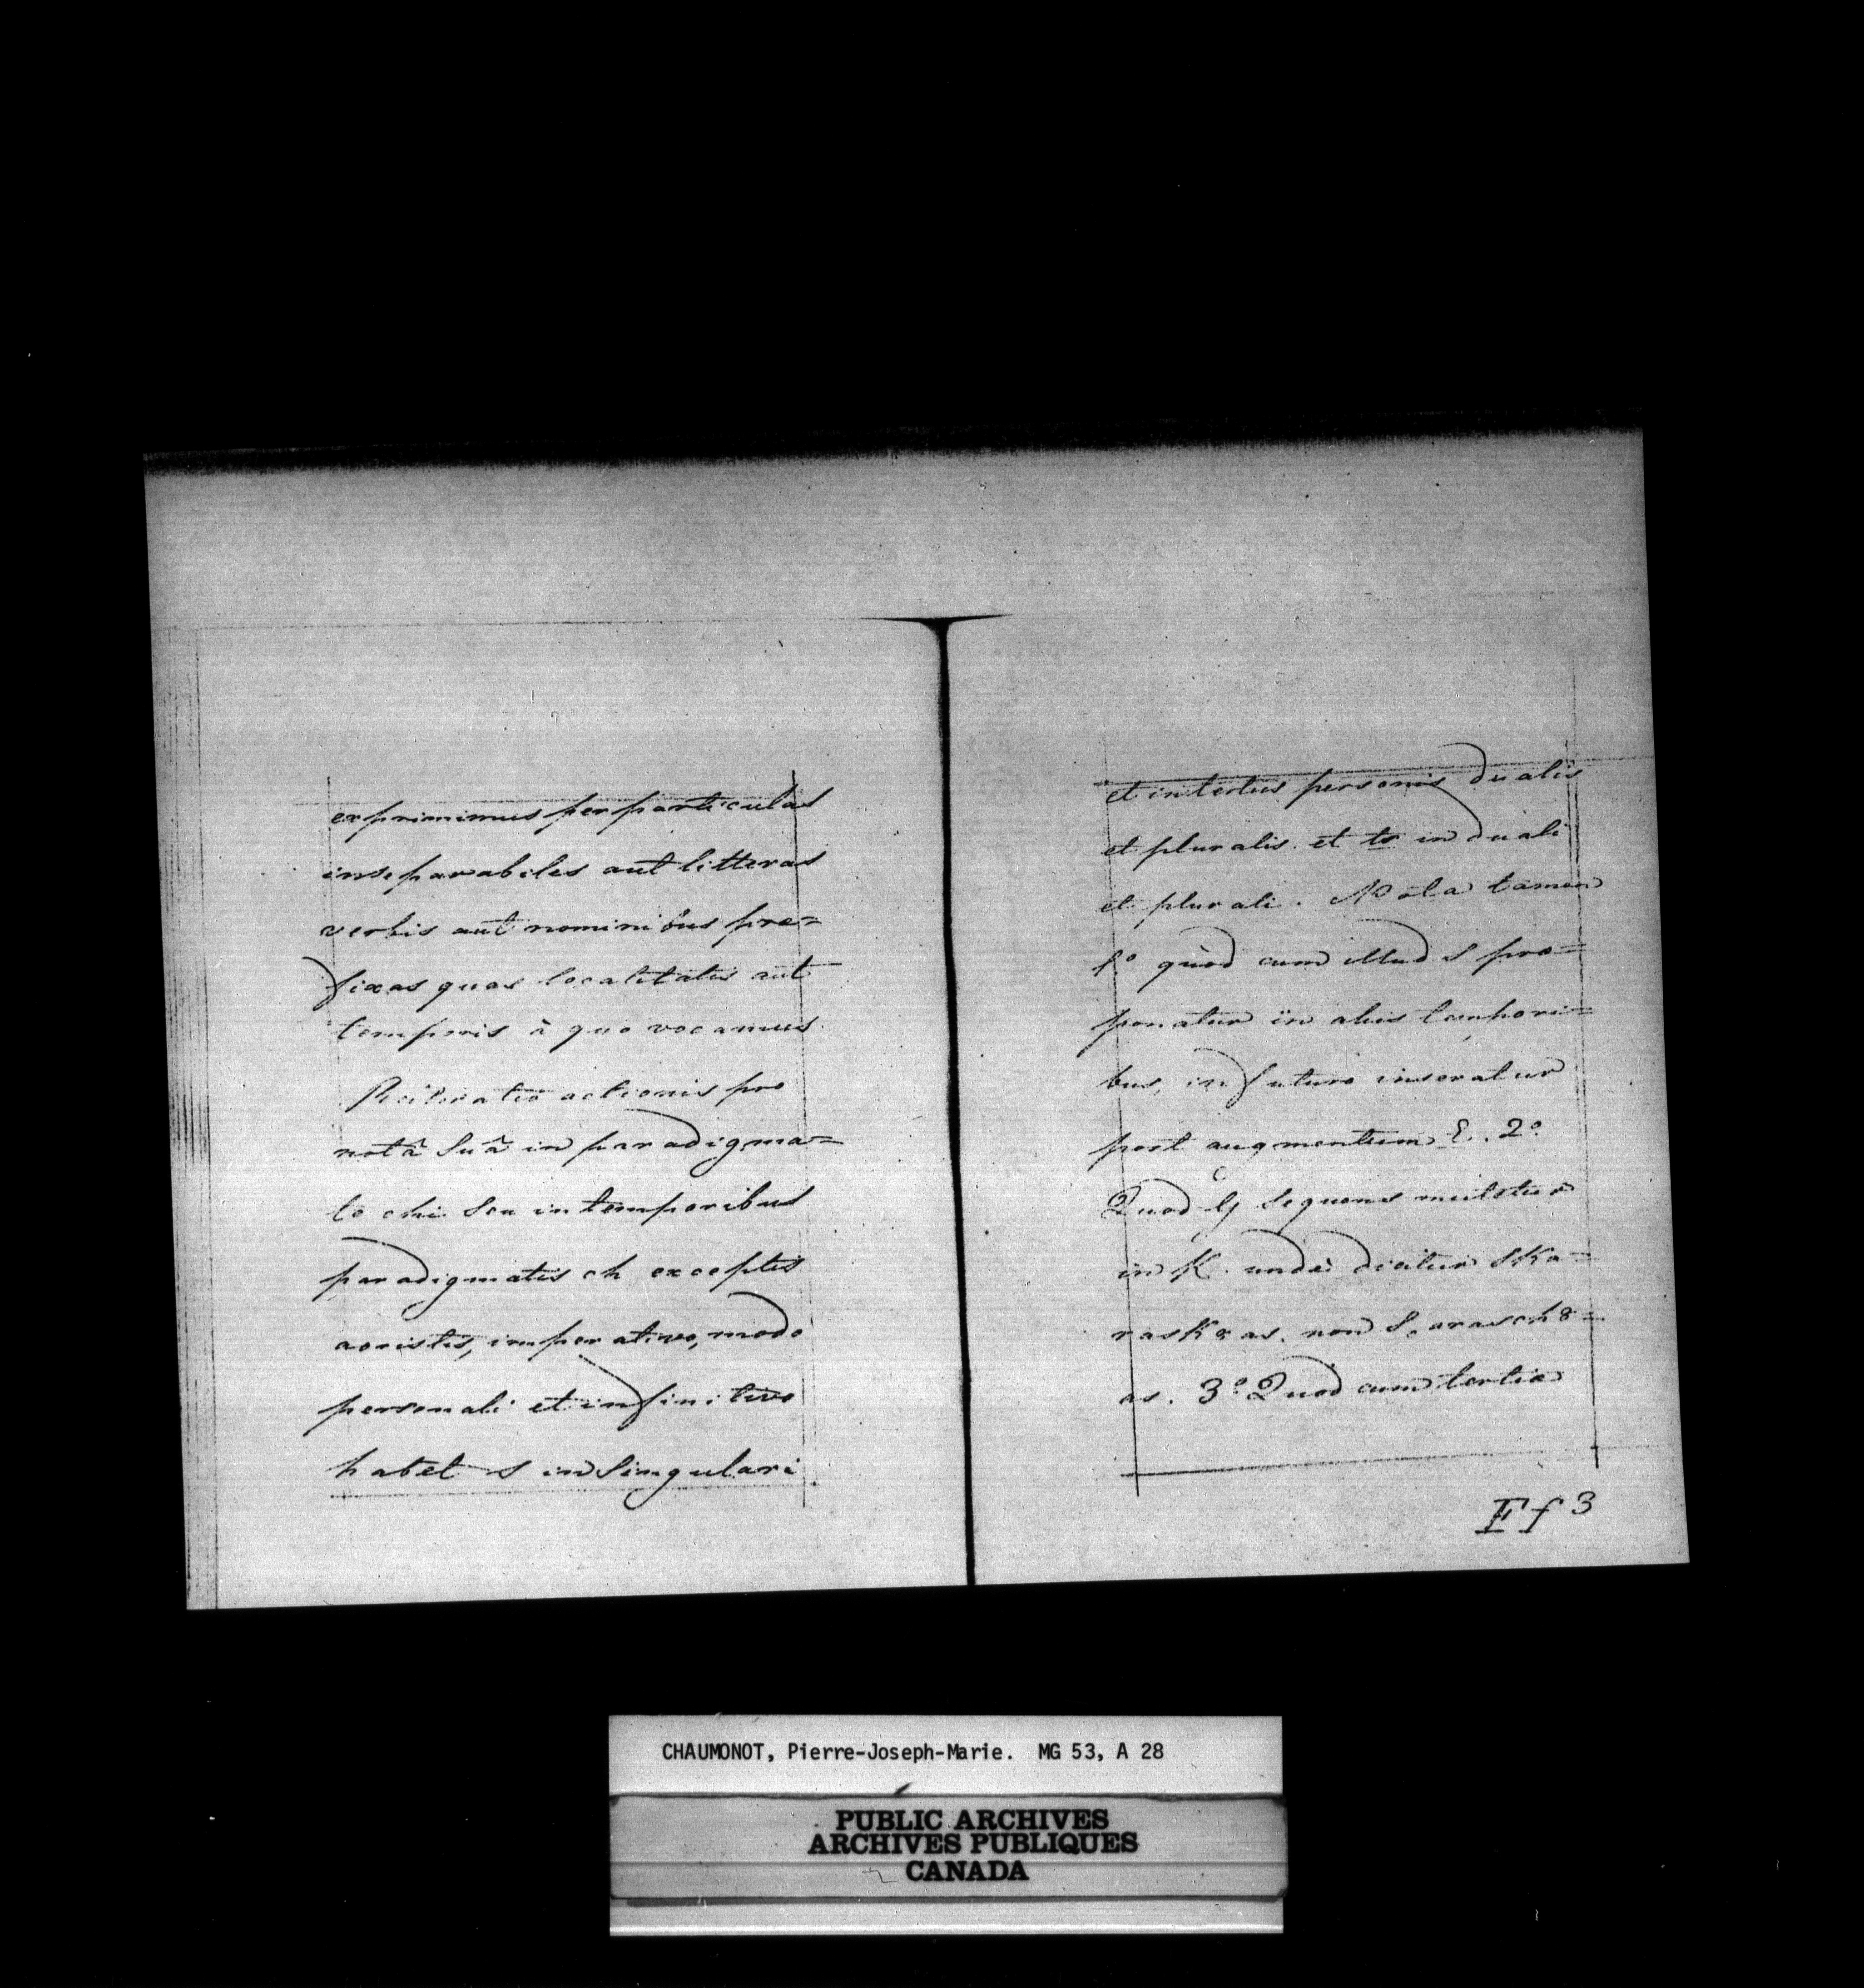 exprimimus per particulas
inseparabiles aut litteras
verbis aut nominibus pre=
fixas quas localitatis aut
temporis à quo vocamus
Reiteratio actionis pro
notâ Suâ in paradigma=
te chi Seu in temporibus
paradigmatis ch exceptis
aoristis, imperativo, modo
personali et infinitivo
habet s in Singulari
et in tertiis personis dualis
et pluralis. et ts in duali
et plurali. Nota tamen
1.º quòd cum illud S pro=
ponatur in aliis tempori=
bus, in futuro inseratur
post augmentum E. 2º
Quod G Sequens mutetur
in K. undè dicitur Ska=
rask8as. non S.arasch8=
as. 3º Quòd cum tertia
Ff 3
CHAUMONOT, Pierre-Joseph-Marie. MG 53, A 28
PUBLIC ARCHIVES
ARCHIVES PUBLIQUES
CANADA